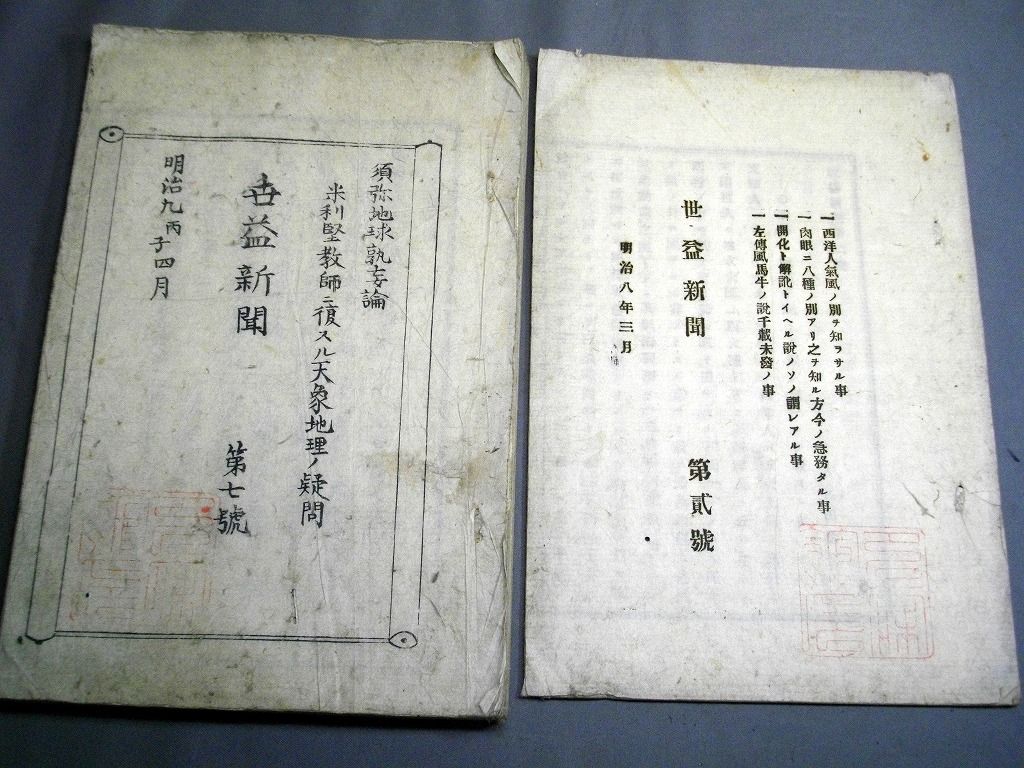 須弥地球孰妄論
米利堅教師ニ復スル天象地理ノ疑問
世益新聞
第七號
明治九丙子四月
一西洋人氣風ノ別ヲ知ラサル事
一肉眼ニ八種ノ別アリ之ヲ知ル方今ノ急務タル事
一開化ト解訛トイヘル說ノソノ謂レアル事
一左傳風馬牛ノ說千載未發ノ事
世益新聞
第貳號
明治八年三月